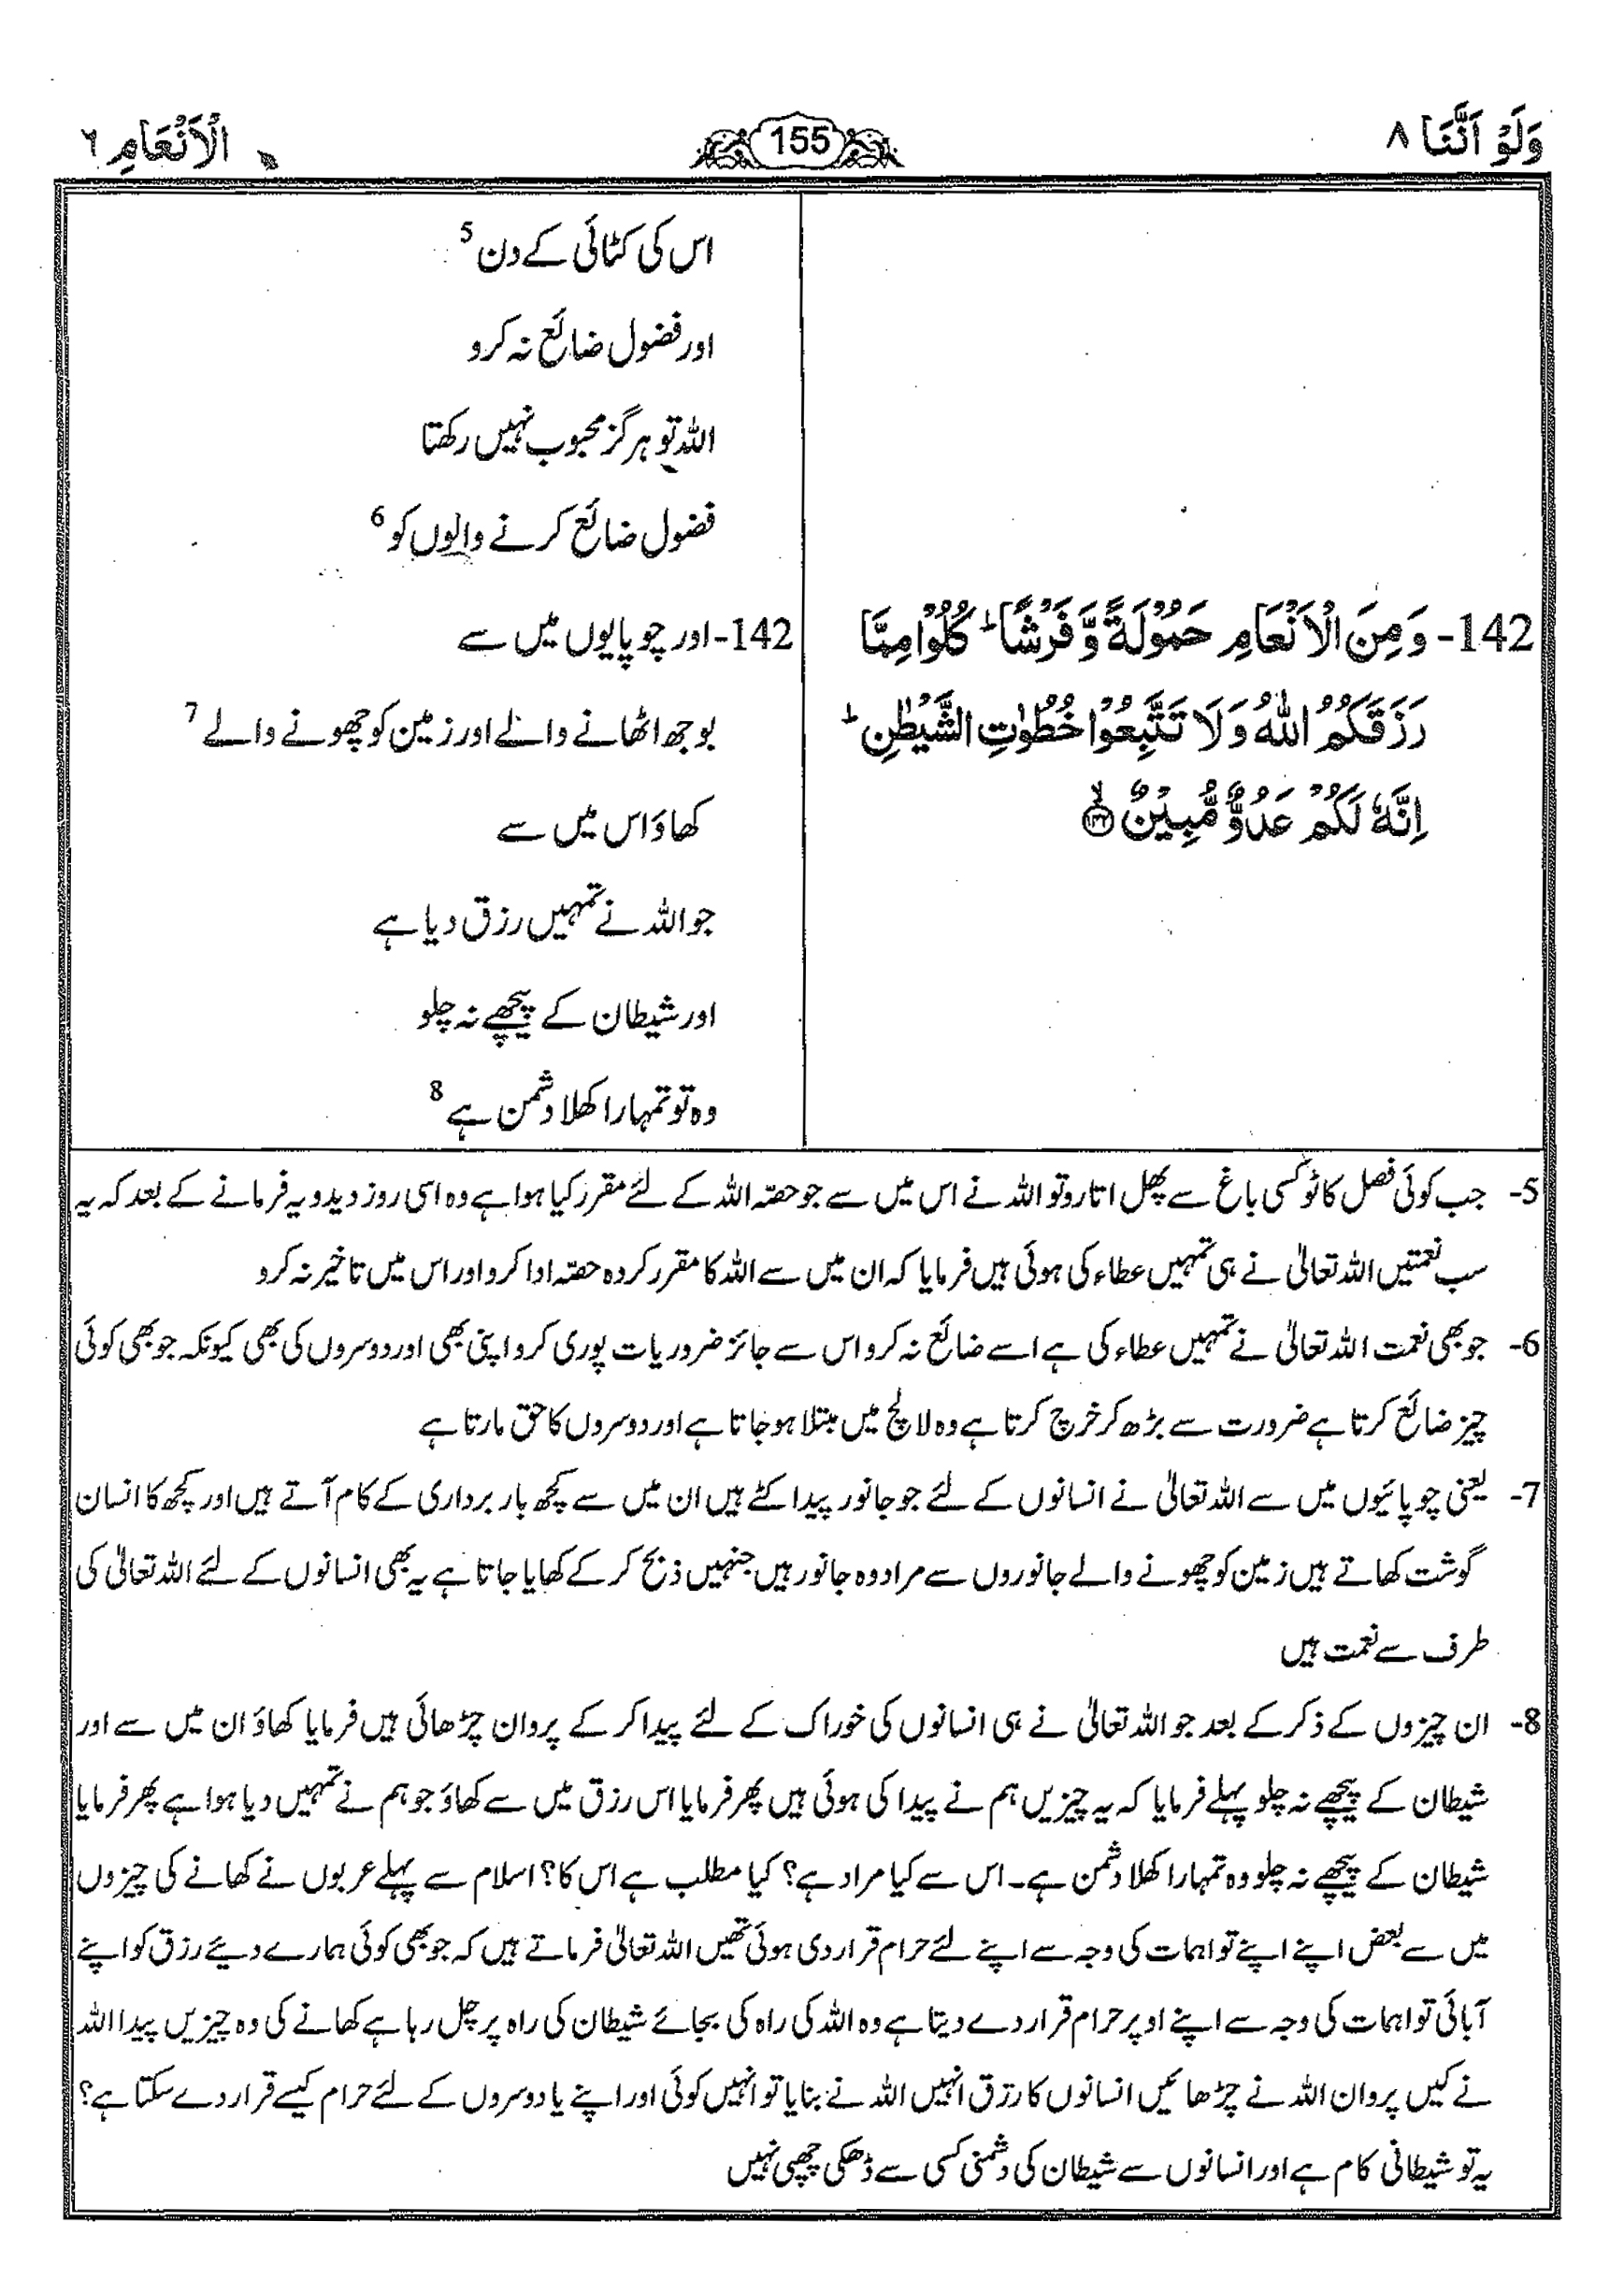 وَلَوْ اَنَّنَا ٨
155
الْاَنْعَامِ ٦
142- وَمِنَ الْاَنْعَامِ حَمُوْلَةً وَّفَرْشًا ؕ كُلُوْا مِمَّا
رَزَقَكُمُ اللّٰهُ وَلَا تَتَّبِعُوْا خُطُوٰتِ الشَّيْطٰنِ ؕ
اِنَّهٗ لَكُمْ عَدُوٌّ مُّبِيْنٌ ۙ﴿١٤٢﴾
اس کی کٹائی کے دن 5
اور فضول ضائع نہ کرو
اللہ تو ہرگز محبوب نہیں رکھتا
فضول ضائع کرنے والوں کو 6
142- اور چوپایوں میں سے
بوجھ اٹھانے والے اور زمین کو چھونے والے 7
کھاؤ اس میں سے
جو اللہ نے تمہیں رزق دیا ہے
اور شیطان کے پیچھے نہ چلو
وہ تو تمہارا کھلا دشمن ہے 8
5- جب کوئی فصل کاٹو کسی باغ سے پھل اتارو تو اللہ نے اس میں سے جو حصّہ اللہ کے لئے مقرر کیا ہوا ہے وہ اسی روز دیدو یہ فرمانے کے بعد کہ یہ
سب نعمتیں اللہ تعالیٰ نے ہی تمہیں عطاء کی ہوئی ہیں فرمایا کہ ان میں سے اللہ کا مقرر کردہ حصّہ ادا کرو اور اس میں تاخیر نہ کرو
6- جو بھی نعمت اللہ تعالیٰ نے تمہیں عطاء کی ہے اسے ضائع نہ کرو اس سے جائز ضروریات پوری کرو اپنی بھی اور دوسروں کی بھی کیونکہ جو بھی کوئی
چیز ضائع کرتا ہے ضرورت سے بڑھ کر خرچ کرتا ہے وہ لالچ میں مبتلا ہو جاتا ہے اور دوسروں کا حق مارتا ہے
7- یعنی چوپائیوں میں سے اللہ تعالیٰ نے انسانوں کے لئے جو جانور پیدا کئے ہیں ان میں سے کچھ بار برداری کے کام آتے ہیں اور کچھ کا انسان
گوشت کھاتے ہیں زمین کو چھونے والے جانوروں سے مراد وہ جانور ہیں جنہیں ذبح کر کے کھایا جاتا ہے یہ بھی انسانوں کے لئے اللہ تعالیٰ کی
طرف سے نعمت ہیں
8- ان چیزوں کے ذکر کے بعد جو اللہ تعالیٰ نے ہی انسانوں کی خوراک کے لئے پیدا کر کے پروان چڑھائی ہیں فرمایا کھاؤ ان میں سے اور
شیطان کے پیچھے نہ چلو پہلے فرمایا کہ یہ چیزیں ہم نے پیدا کی ہوئی ہیں پھر فرمایا اس رزق میں سے کھاؤ جو ہم نے تمہیں دیا ہوا ہے پھر فرمایا
شیطان کے پیچھے نہ چلو وہ تمہارا کھلا دشمن ہے۔ اس سے کیا مراد ہے؟ کیا مطلب ہے اس کا؟ اسلام سے پہلے عربوں نے کھانے کی چیزوں
میں سے بعض اپنے اپنے تواہمات کی وجہ سے اپنے لئے حرام قرار دی ہوئی تھیں اللہ تعالیٰ فرماتے ہیں کہ جو بھی کوئی ہمارے دیئے رزق کو اپنے
آبائی تواہمات کی وجہ سے اپنے اوپر حرام قرار دے دیتا ہے وہ اللہ کی راہ کی بجائے شیطان کی راہ پر چل رہا ہے کھانے کی وہ چیزیں پیدا اللہ
نے کیں پروان اللہ نے چڑھائیں انسانوں کا رزق انہیں اللہ نے بنایا تو انہیں کوئی اور اپنے یا دوسروں کے لئے حرام کیسے قرار دے سکتا ہے؟
یہ تو شیطانی کام ہے اور انسانوں سے شیطان کی دشمنی کسی سے ڈھکی چھپی نہیں